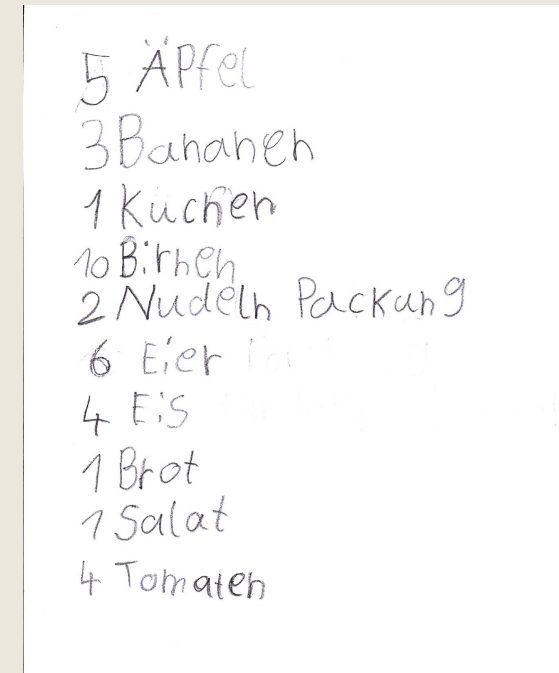 5 Äpfel
3 Bananen
1 Kuchen
10 Birnen
2 Nudeln Packung
6 Eier
4 Eis
1 Brot
1 Salat
4 Tomaten